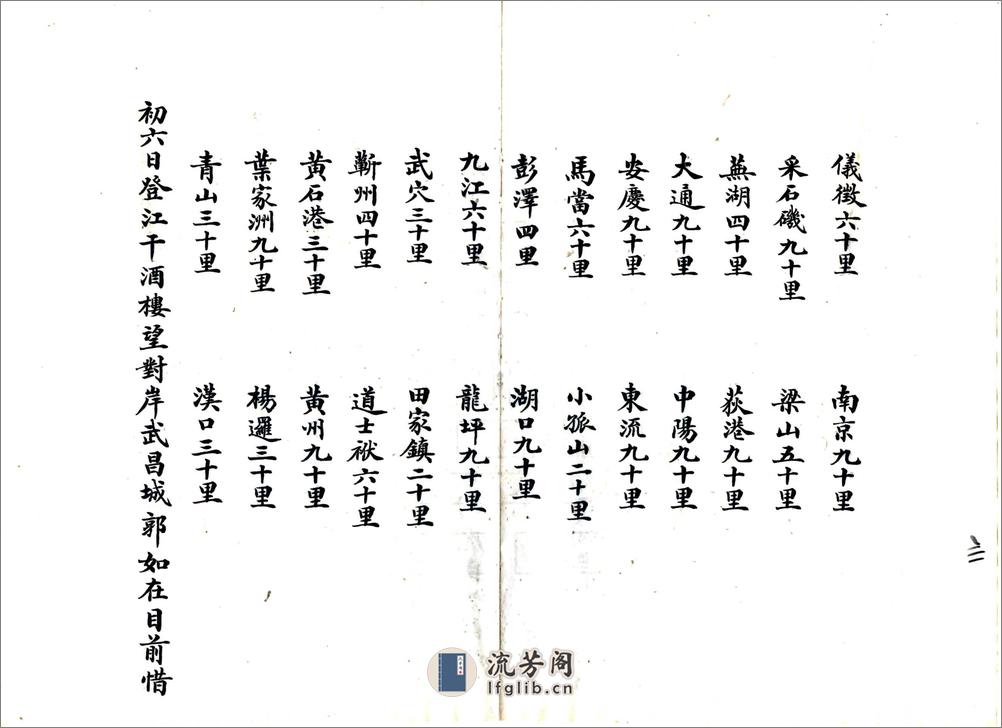 儀徵六十里　南京九十里
采石磯九十里　梁山五十里
蕪湖四十里　荻港九十里
大通九十里　中陽九十里
安慶九十里　東流九十里
馬當六十里　小孤山二十里
彭澤四里　湖口九十里
九江六十里　龍坪九十里
武穴三十里　田家鎮二十里
蘄州四十里　道士袱六十里
黃石港三十里　黃州九十里
葉家洲九十里　楊邏三十里
青山三十里　漢口三十里
初六日登江干酒樓望對岸武昌城郭如在目前惜
三
流芳阁
lfglib.cn